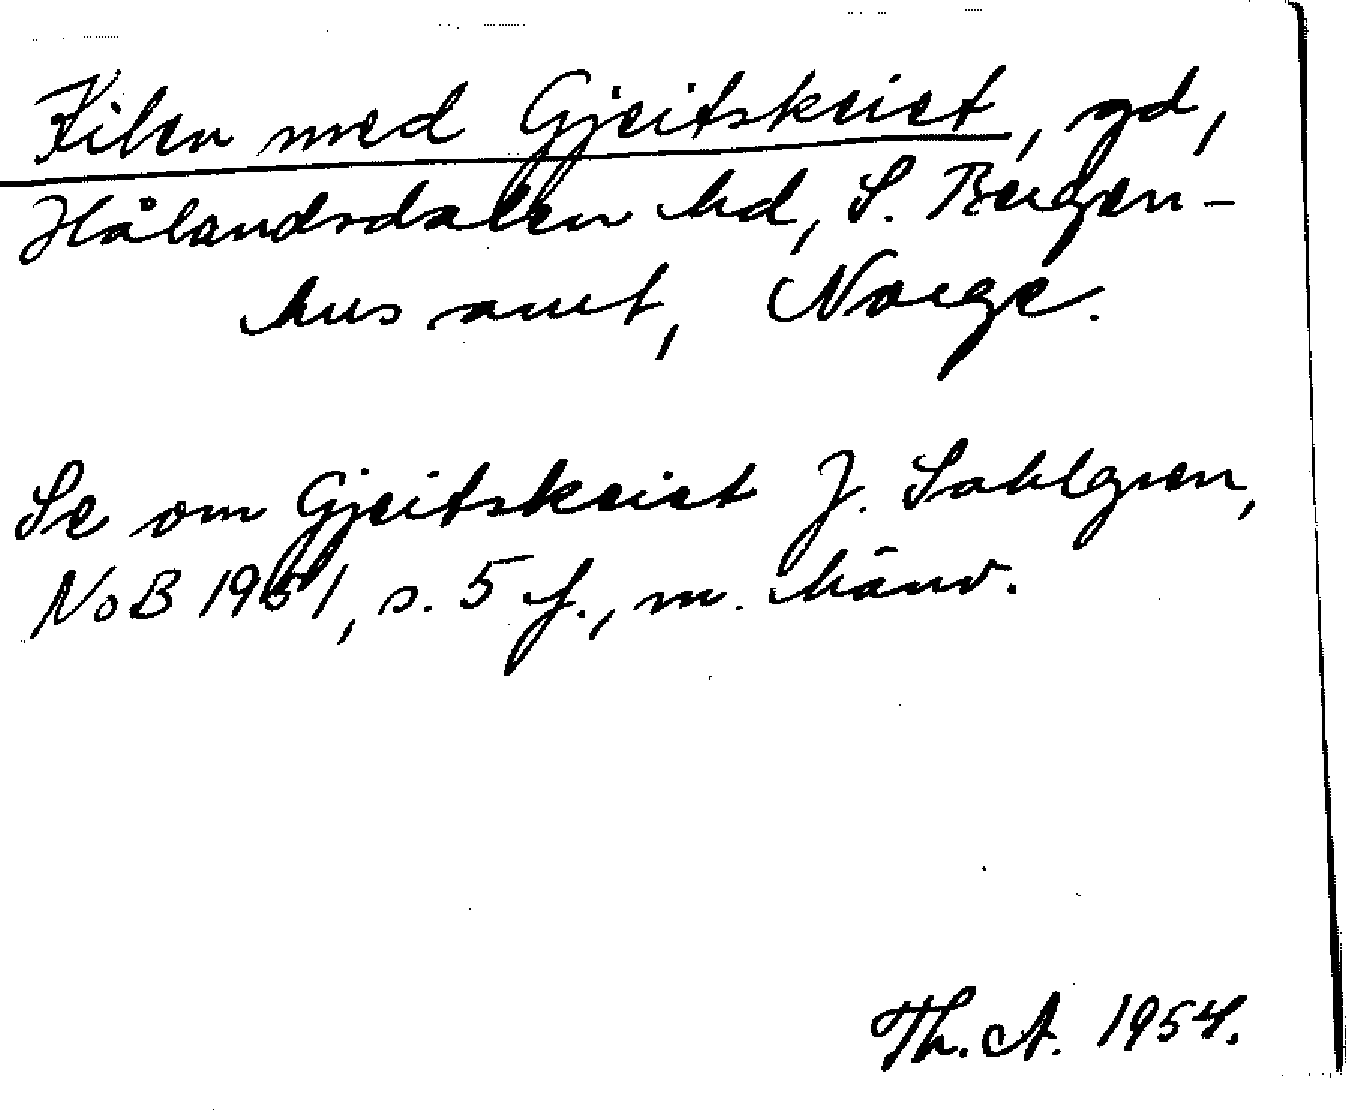 Kilen med Gjeitskriet, gd,
Hålandsdalen hd, S. Bergen-
hus amt, Norge.
Se om Gjeitskriet J. Sahlgren,
NoB 1951, s. 5 f., m. hänv.
Th. A. 1954.